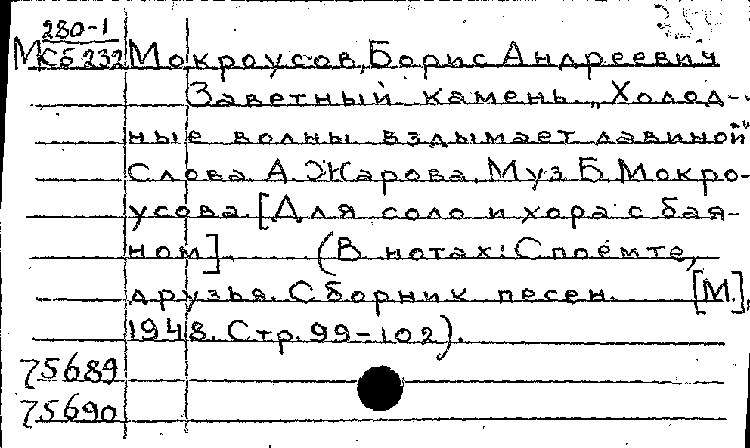 280-1
М Сб 232 Мокроусов, Борис Андреевич
Заветный камень „Холод-
ные волны вздымает лавиной"
Слова А. Жарова. Муз Б. Мокро-
усова. [Для соло и хора с бая-
ном]. (В нотах: Споёмте,
друзья. Сборник песен. [М.],
1948. Стр. 99-102).
75689
75690